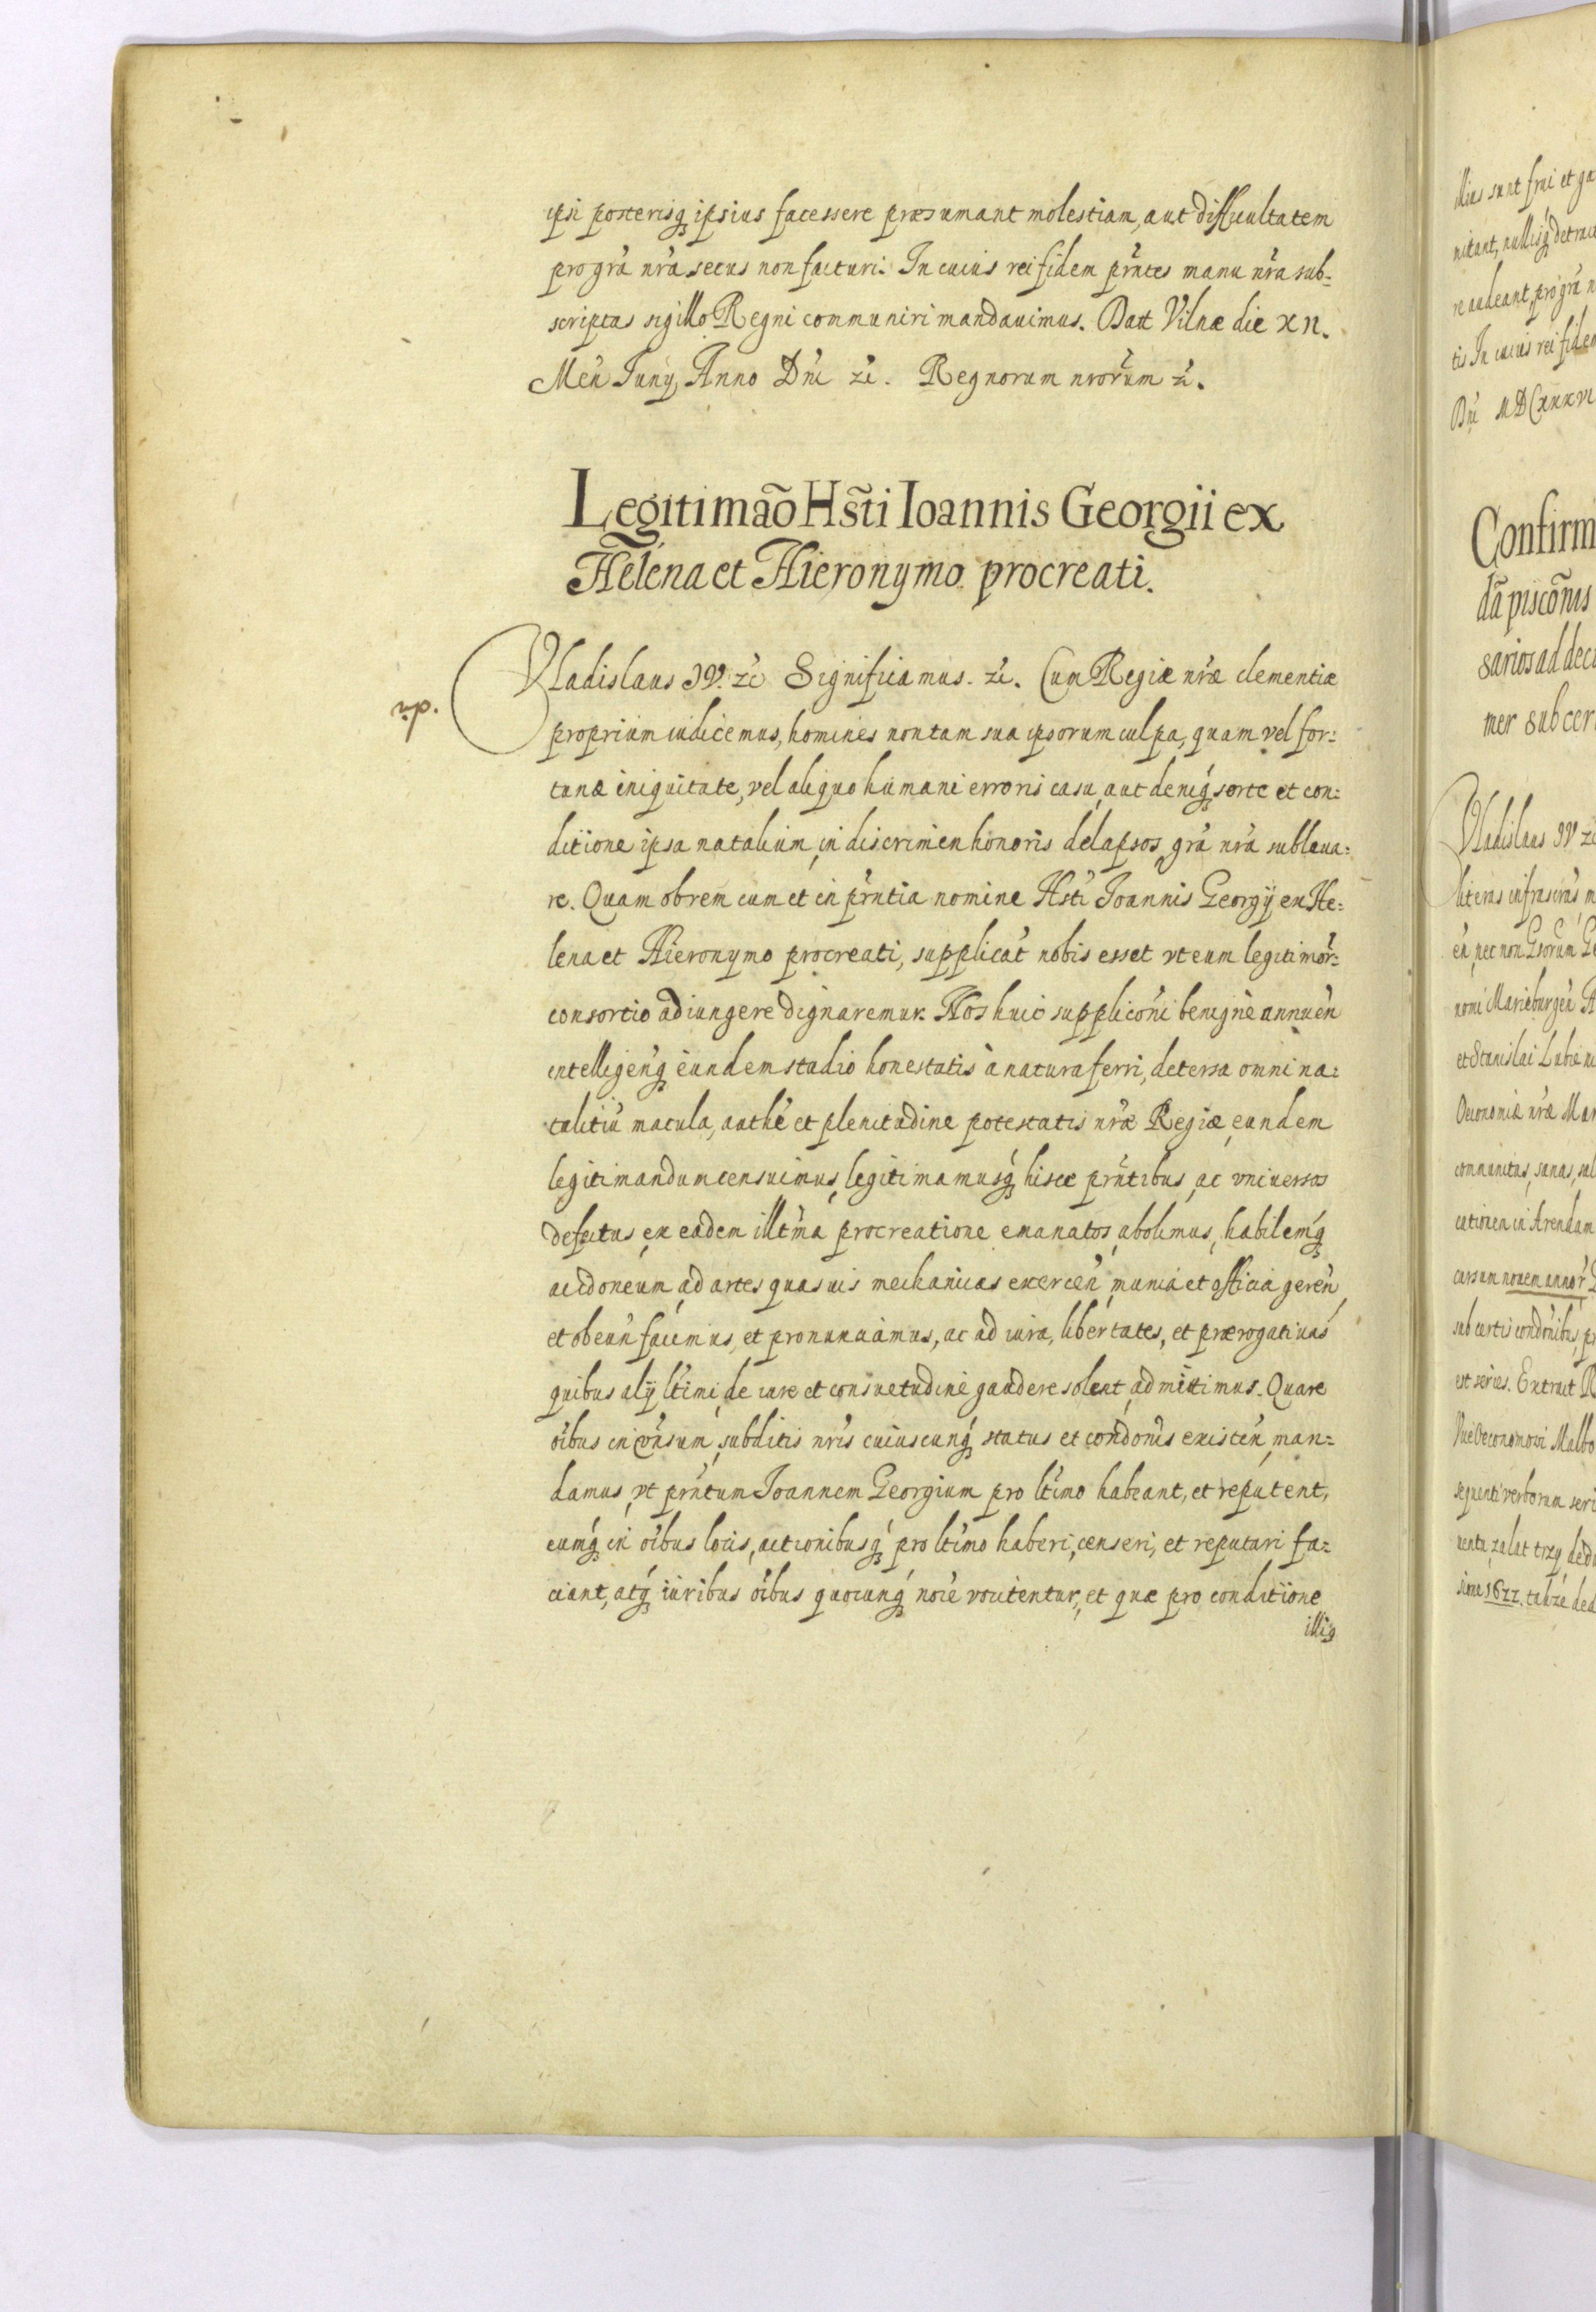 ipsi posterisq́ȝ ipsius facessere præsumant molestiam, aut difficultatem
pro gr̃a nr̃a secus non facturi. In cuius rei fidem pr̃ntes manu nr̃a sub=
scriptas sigillo Regni communiri mandauimus. Datt Vilnæ die XII.
Meñ Iunÿ, Anno Dñi zc̃. Regnorum nrõrum zc̃.
Legitimaõ Hs̃ti Ioannis Georgii ex
Helena et Hieronymo procreati.
Vladislaus IV. zc̃ Significamus. zc̃. Cum Regiæ nr̃æ clementiæ
proprium iudicemus, homines non tam sua ipsorum culpa, quam vel for=
tunæ iniquitate, vel aliquo humani erroris casu, aut deniq́ȝ sorte et con=
ditione ipsa natalium, in discrimen honoris delapsos, gr̃a nr̃a subleua=
re. Quam obrem cum et in pr̃ntia nomine Hs̃ti Ioannis Georgÿ ex He=
lena et Hieronymo procreati, supplicat̃ nobis esset vt eum legitimor̃=
consortio adiungere dignaremur. Nos huic supplicõni benignè annueñ
intelligenq́ȝ eundem studio honestatis à natura ferri, detersa omni na=
talitiũ macula, authẽ et plenitudine potestatis nr̃æ Regiæ, eundem
legitimandum censuimus, legitimamusq́ȝ hisce pr̃ntibus, ac vniuersos
defectus, ex eadem illtm̃a procreatione emanatos, abolimus, habilemq́ȝ
ac idoneum, ad artes quasuis mechanicas exerceñ, munia et officia gereñ,
et obeuñ facimus, et pronunciamus, ac ad iura, libertates, et prærogatiuas
quibus alÿ ltĩmi, de iure et consuetudine gaudere solent, admittimus. Quare
oĩbus in vñsum, subditis nr̃is cuiuscunq́ȝ status et condõnis existeñ, man=
damus, vt pr̃ntum Ioannem Georgium pro ltĩmo habeant, et reputent,
eumq́ȝ in oĩbus locis, actionibusq́ȝ pro ltĩmo haberi, censeri, et reputari fa=
ciant, atq́ȝ iuribus oĩbus quocunq́ȝ noĩe vocitentur, et quæ pro conditione
illis
illius sunt frui et ga
nitant, nullisq́ȝ detract
re audeant, pro gr̃a n
tis In cuius rei fidem
Dñi MDCXXXVI
Confirm
dã piscõnis
sarios ad dec
mer sub cer
Vladislaus IV zc̃
literas infrascr̃as m
eñ, nec non Gsõrum Ge
nomi Marieburgeñ
et Stanislai Lubie
Oeconomiæ nr̃æ Mar
communitas, sanas, sal
cationem in Arendam
cursum nouem annor̃
sub certis condõnibus, pr
est series. Extract R
Viceoeconomowi Malbo
sequenti verborum seri
uentu, zalat trzy, ded
sione 1622. także ded